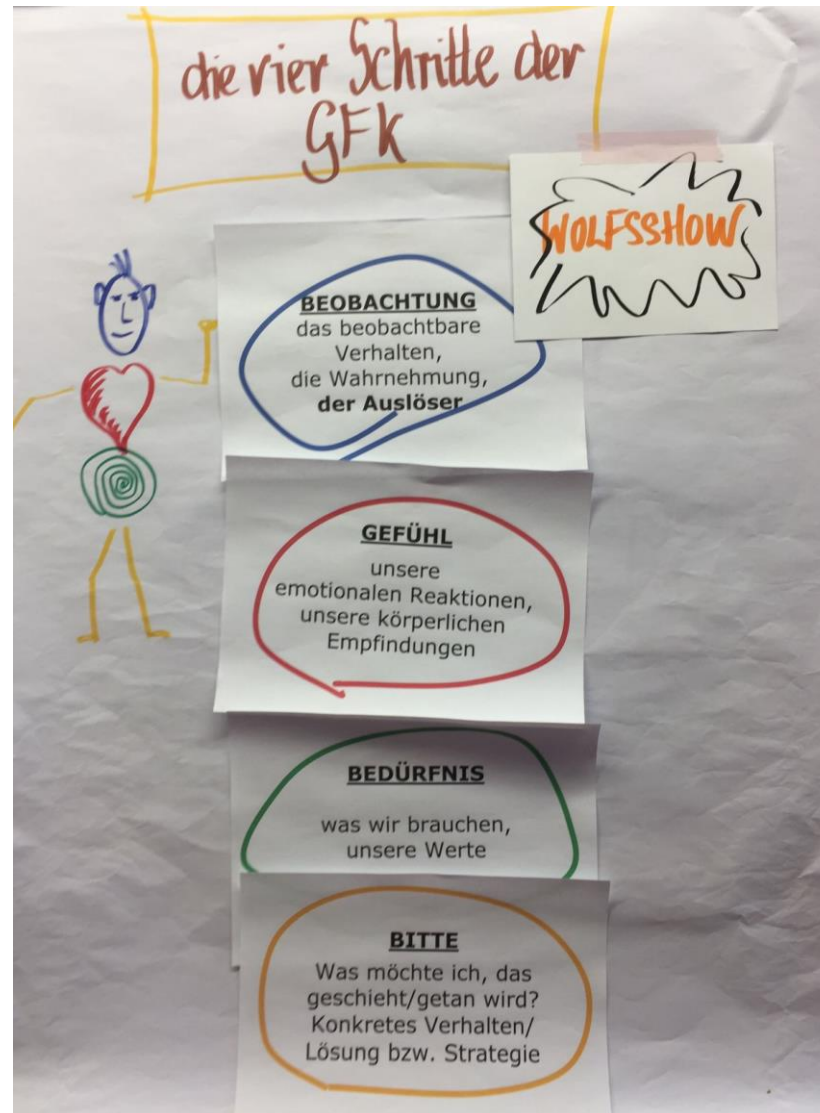 die vier Schritte der
GFK
WOLFSSHOW
BEOBACHTUNG
das beobachtbare
Verhalten,
die Wahrnehmung,
der Auslöser
GEFÜHL
unsere
emotionalen Reaktionen,
unsere körperlichen
Empfindungen
BEDÜRFNIS
was wir brauchen,
unsere Werte
BITTE
Was möchte ich, das
geschieht/getan wird?
Konkretes Verhalten/
Lösung bzw. Strategie